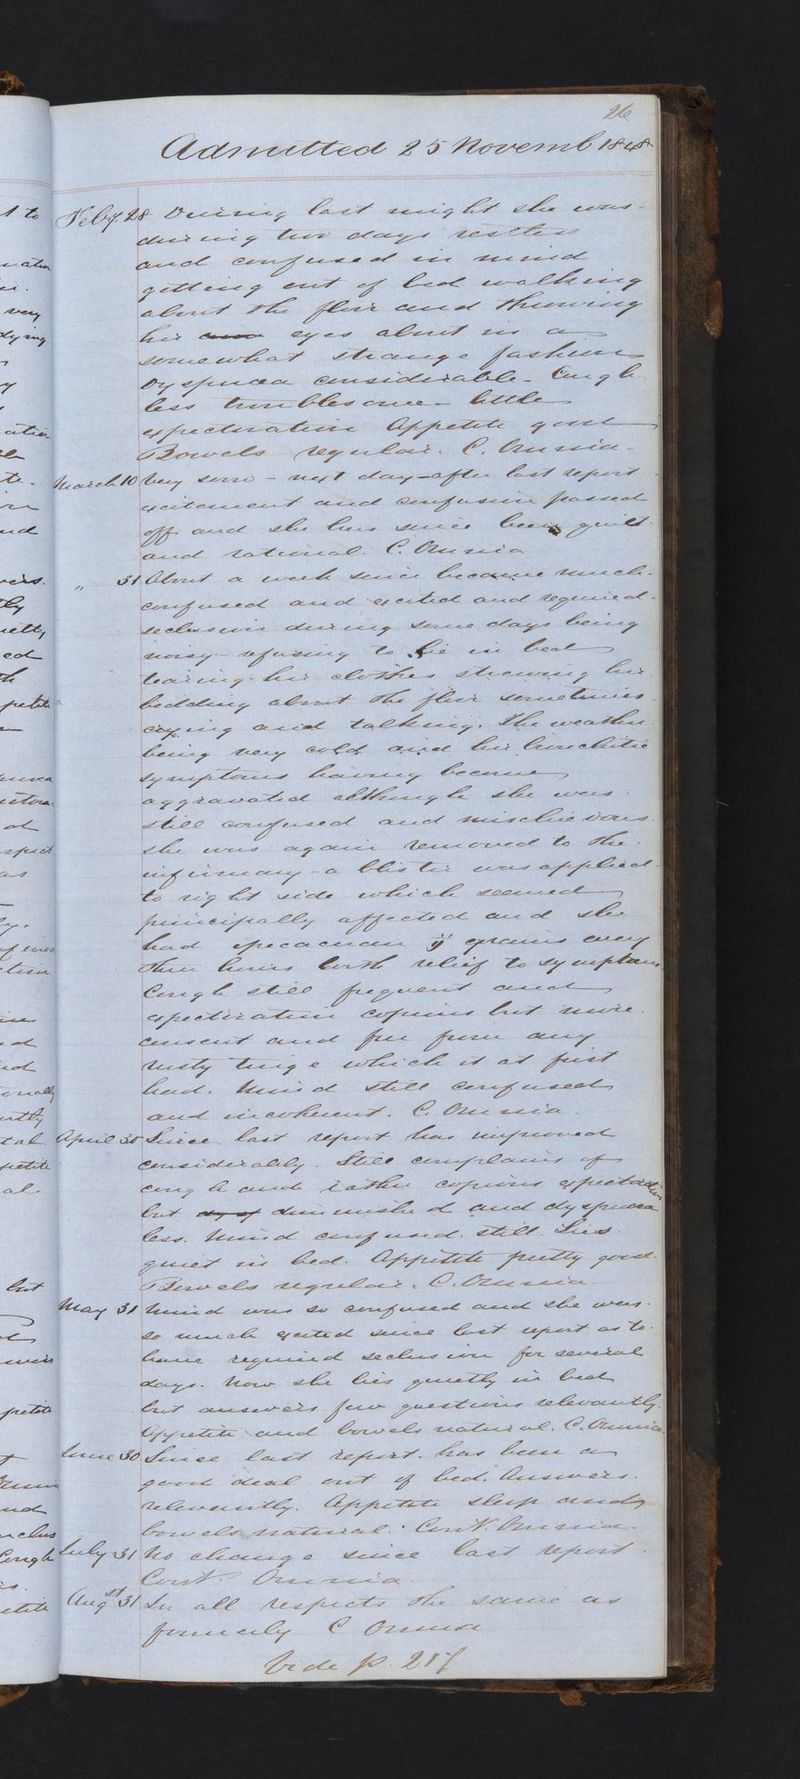 26
Admitted 25 Novemb 1848
Feby. 28 During last night she was
during two days restless
and confused in mind
getting out of bed walking
about the floor and throwing
her eyes about in a
somewhat strange fashion
Dyspnoea considerable - Cough
less troublesome - little
expectoration Appetite good
Bowels regular. C. Omnia
March 10 Very soon - next day - after last report
excitement and confusion passed
off and she has since been quiet
and rational. C. Omnia
" 31 About a week since became much
confused and excited and required
seclusion during some days being
noisy refusing to lie in bed
tearing her clothes strewing her
bedding about the floor sometimes
crying and talking. The weather
being very cold and her bronchitic
symptoms having become
aggravated although she was
still confused and mischievous
she was again removed to the
infirmary - a blister was applied
to right side which seemed
principally affected and she
had ipecacuan ij grains every
three hours with relief to symptoms
Cough still frequent and
expectoration copious but more
and free from any
rusty tinge which it at first
had. Mind still confused
and incoherent. C. Omnia
April 30 Since last report has improved
considerably. Still complains of
cough and rather copious expectoration
but diminished and dyspnoea
less. Mind confused still. Lies
quiet in bed. Appetite pretty good.
Bowels regular. C. Omnia
May 31 Mind was so confused and she was
so much excited since last report as to
have required seclusion for several
days. Now she lies quietly in bed
but answers few questions relevantly.
Appetite and bowels natural. C. Omnia
June 30 Since last report has been a
good deal out of bed. Answers
relevantly. Appetite sleep and
bowels natural. Cont. Omnia
July 31 No change since last report
Cont. Omnia
Augst 31 In all respects the same as
formerly C Omnia
Vide p. 217